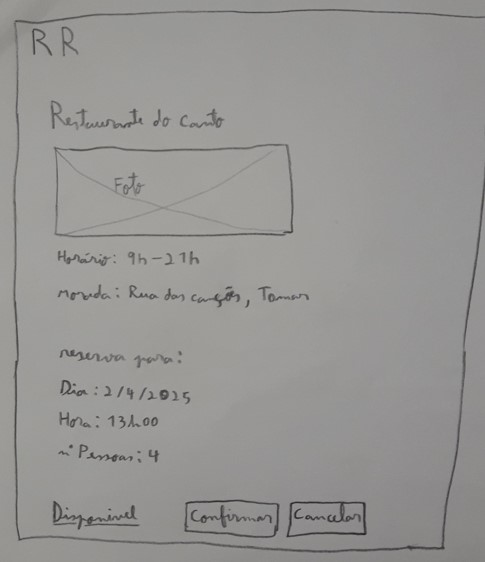 RR
Restaurante do canto
Foto
Horário: 9h-21h
morada: Rua das canções, Tomar
reserva para:
Dia: 2/4/2025
Hora: 13h00
nº Pessoas: 4
Disponível
Confirmar
Cancelar